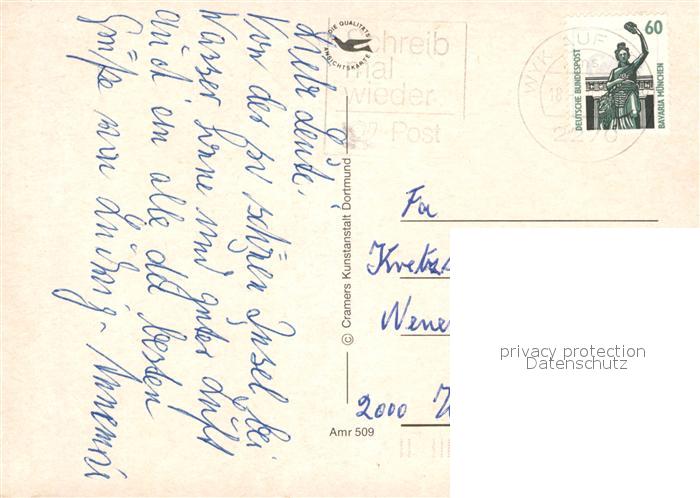 Liebe Leute!
Von der so schönen Insel bei
Wasser Sonne und guter Luft
auch ein alle die besten
Grüße von Ludwig - Annemarie
DIE QUALITÄTS
ANSICHTSKARTE
Schreib
mal
wieder
Post
WYK AUF
18
2270
60
DEUTSCHE BUNDESPOST
BAVARIA MÜNCHEN
© Cramers Kunstanstalt Dortmund
Amr 509
Fa
Kretz
Neue
2000
privacy protection
Datenschutz